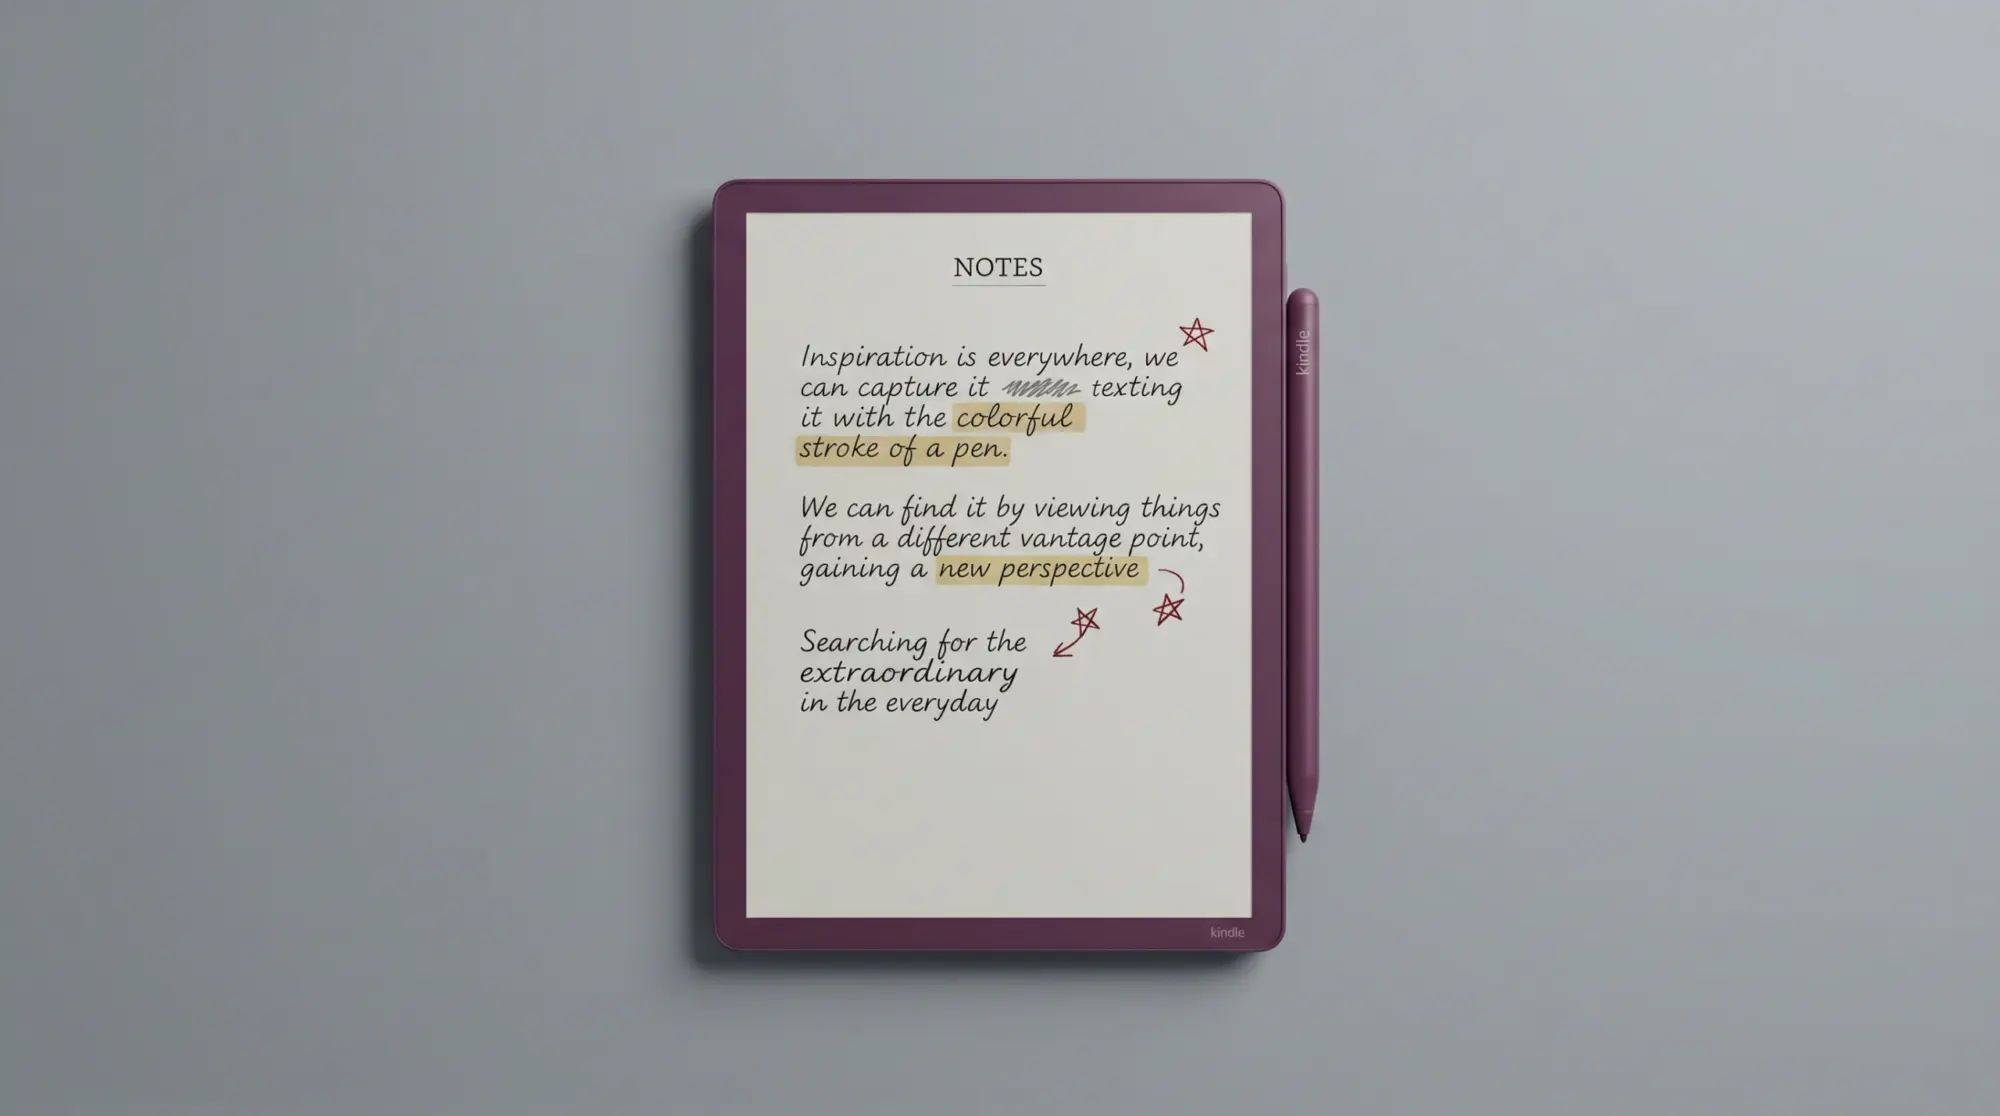 NOTES
Inspiration is everywhere, we
can capture it texting
it with the colorful
stroke of a pen.
We can find it by viewing things
from a different vantage point,
gaining a new perspective
Searching for the
extraordinary
in the everyday
kindle
kindle